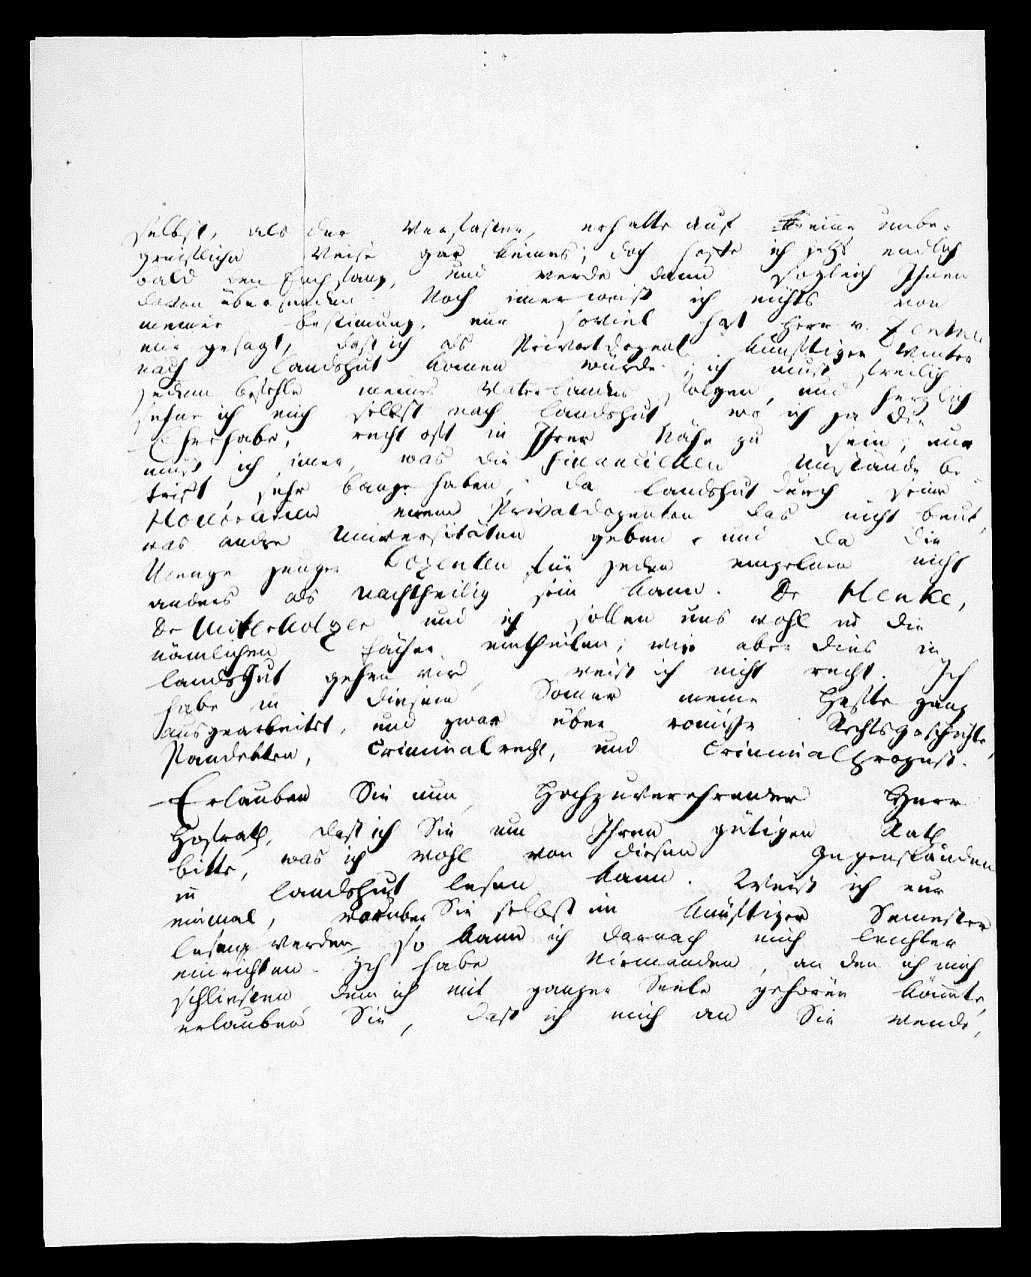 selbst, als der Verfasser, erhalte auf eine unbe-
greifliche Weise gar keines; doch hoffe ich jetzt endlich
bald den Empfang, und werde dann sogleich Ihnen
davon übersenden. Noch imer weiß ich nichts von
meiner Bestimung, nur soviel hat Herr v. Zentner
mir gesagt, daß ich als Privatdozent künftigen Winter
nach Landshut komen würde; ich muß freilich
jedem Befehle meines Vaterlandes folgen, und herzlich
sehne ich mich selbst nach Landshut wo ich ja die
Ehre habe, recht oft in Ihrer Nähe zu sein; nur
muß ich imer, was die financiellen Umstände be-
trift, sehr bange haben, da Landshut durch seine
Honorarien einem Privatdozenten das nicht beut,
was andre Universitäten geben, und da die
Menge junger Dozenten für jeden einzelnen nicht
anders als nachtheilig sein kann. Dr Henke,
Dr Mitterholzer und ich sollen uns wohl in die
nämlichen Fächer eintheilen; wie aber dies in
Landshut gehen wird, weiß ich nicht recht. Ich
habe in diesem Somer meine Hefte ganz
ausgearbeitet, und zwar über römische Rechtsgeschichte,
Pandekten, Criminalrecht, und Criminalprozeß.
Erlauben Sie nun, Hochzuverehrender Herr
Hofrath, daß ich Sie um Ihren gütigen Rath
bitte, was ich wohl von diesen Gegenständen
in Landshut lesen kann. Weiß ich nur
einmal, worüber Sie selbst im künftigen Semester
lesen werden, so kann ich darnach mich leichter
einrichten. Ich habe Niemanden, an den ich mich
schliessen, dem ich mit ganzer Seele gehören könnte,
erlauben Sie, daß ich mich an Sie wende,